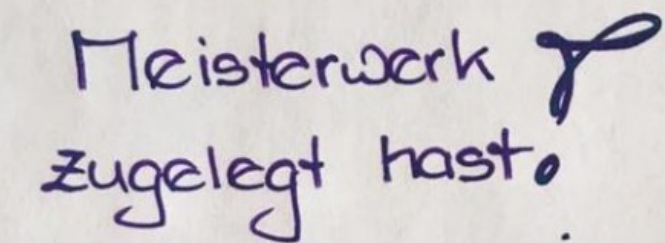 Meisterwerk
zugelegt hast!